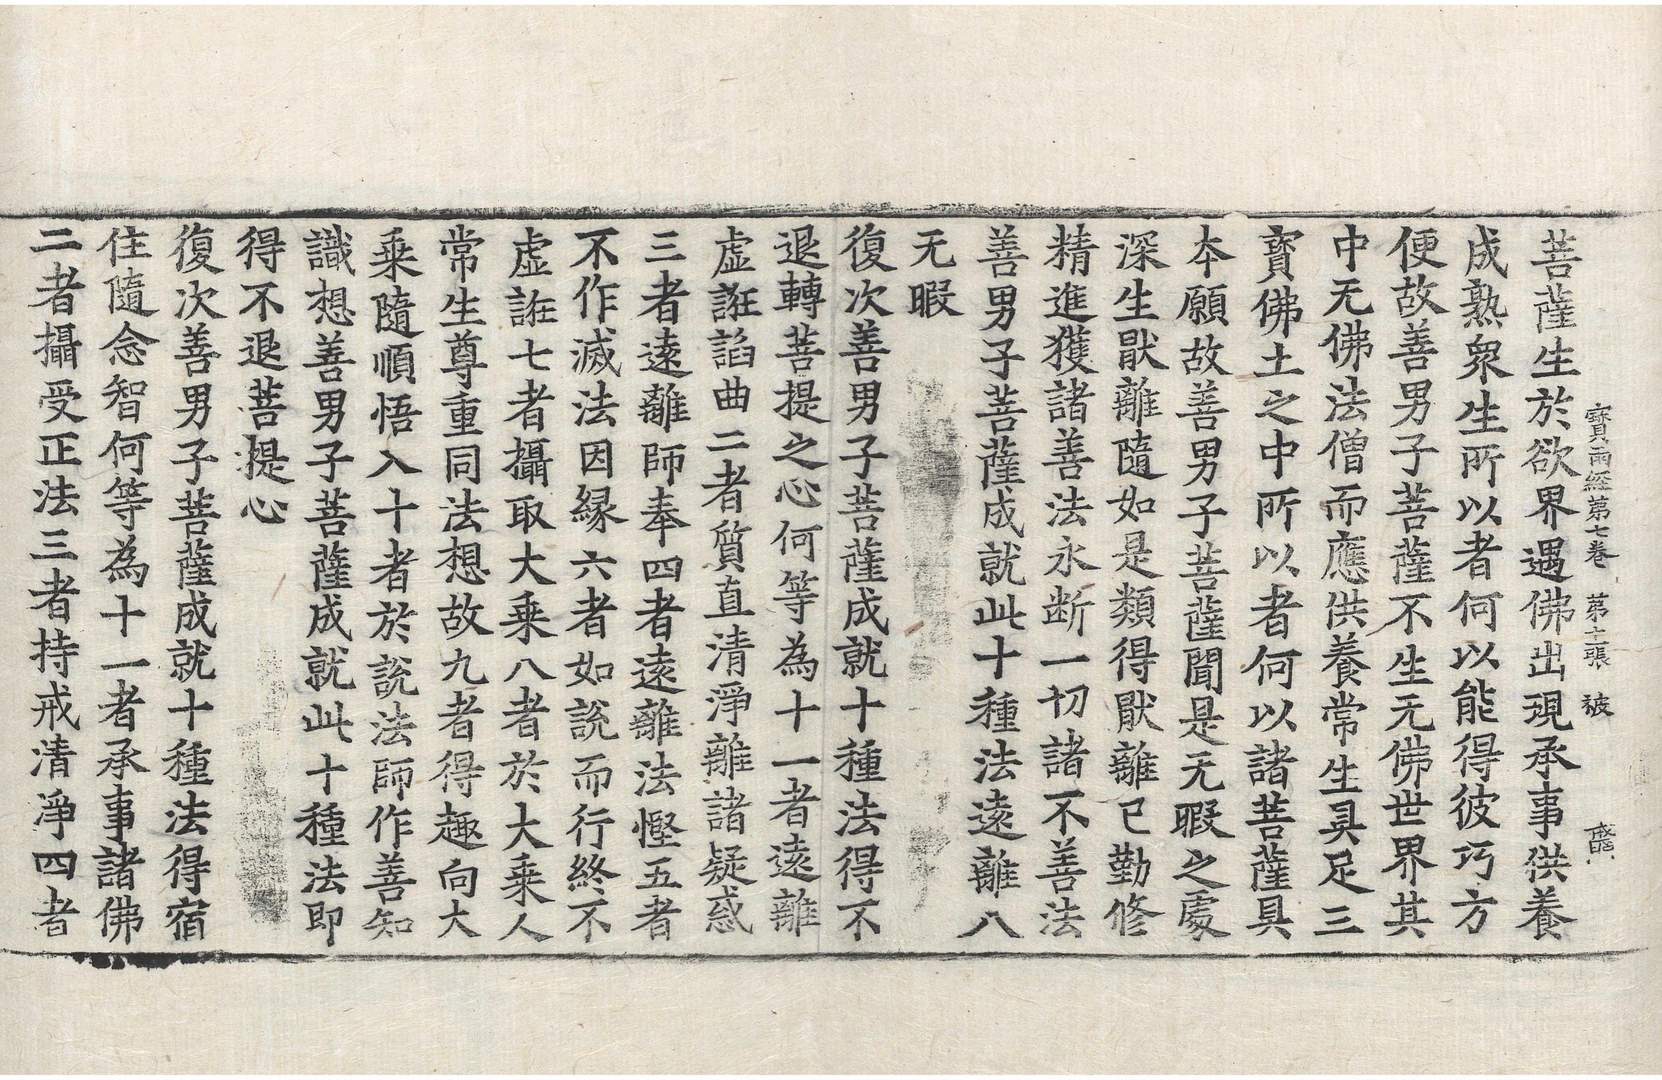 寶雨經第七卷　第十張　被
菩薩生於欲界遇佛出現承事供養
成熟衆生所以者何以能得彼巧方
便故善男子菩薩不生无佛世界其
中无佛法僧而應供養常生具足三
寳佛土之中所以者何以諸菩薩具
本願故善男子菩薩聞是无暇之處
深生猒離隨如是類得猒離已勤修
精進獲諸善法永断一切諸不善法
善男子菩薩成就此十種法遠離八
无暇
復次善男子菩薩成就十種法得不
退轉菩提之心何等為十一者遠離
虛誑諂曲二者質直清淨離諸疑惑
三者遠離師奉四者遠離法慳五者
不作滅法因緣六者如說而行終不
虛誑七者攝取大乘八者於大乘人
常生尊重同法想故九者得趣向大
乘隨順悟入十者於說法師作善知
識想善男子菩薩成就此十種法即
得不退菩提心
復次善男子菩薩成就十種法得宿
住隨念智何等為十一者承事諸佛
二者攝受正法三者持戒清淨四者